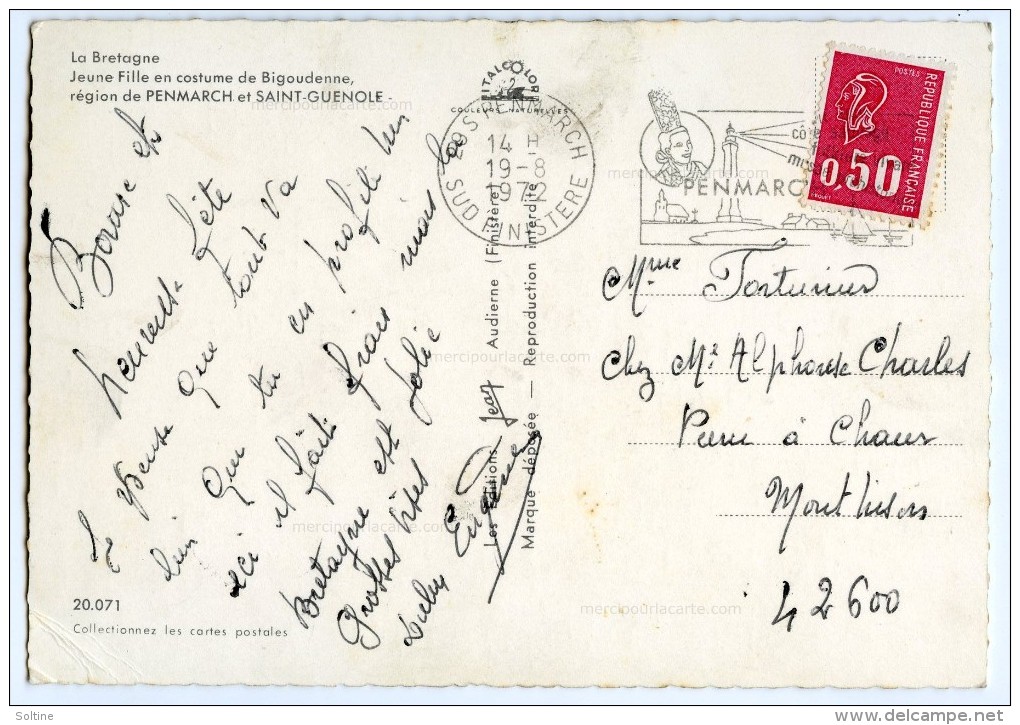 La Bretagne
Jeune Fille en costume de Bigoudenne,
région de PENMARCH et SAINT-GUENOLE -
mercipourlacarte.com
ITALCOLOR
COULEURS NATURELLES
29S PENMARCH
14 H
19-8
1972
SUD FINISTERE
mercipourlacarte.com
PENMARC
POSTES
REPUBLIQUE FRANÇAISE
0,50
Bonne et
heureuse fête
Je pense que tout va
bien que tu en profite bien
ici il fait frais mais la
Bretagne est jolie
Grosses bises
Les Editions Jean Audierne (Finistère)
Marque déposée — Reproduction interdite
mercipourlacarte.com
Mme
chez Mr Alphonse Charles
à Chaux
Montbison
42600
mercipourlacarte.com
mercipourlacarte.com
20.071
Collectionnez les cartes postales
Soltine
delcampe.net